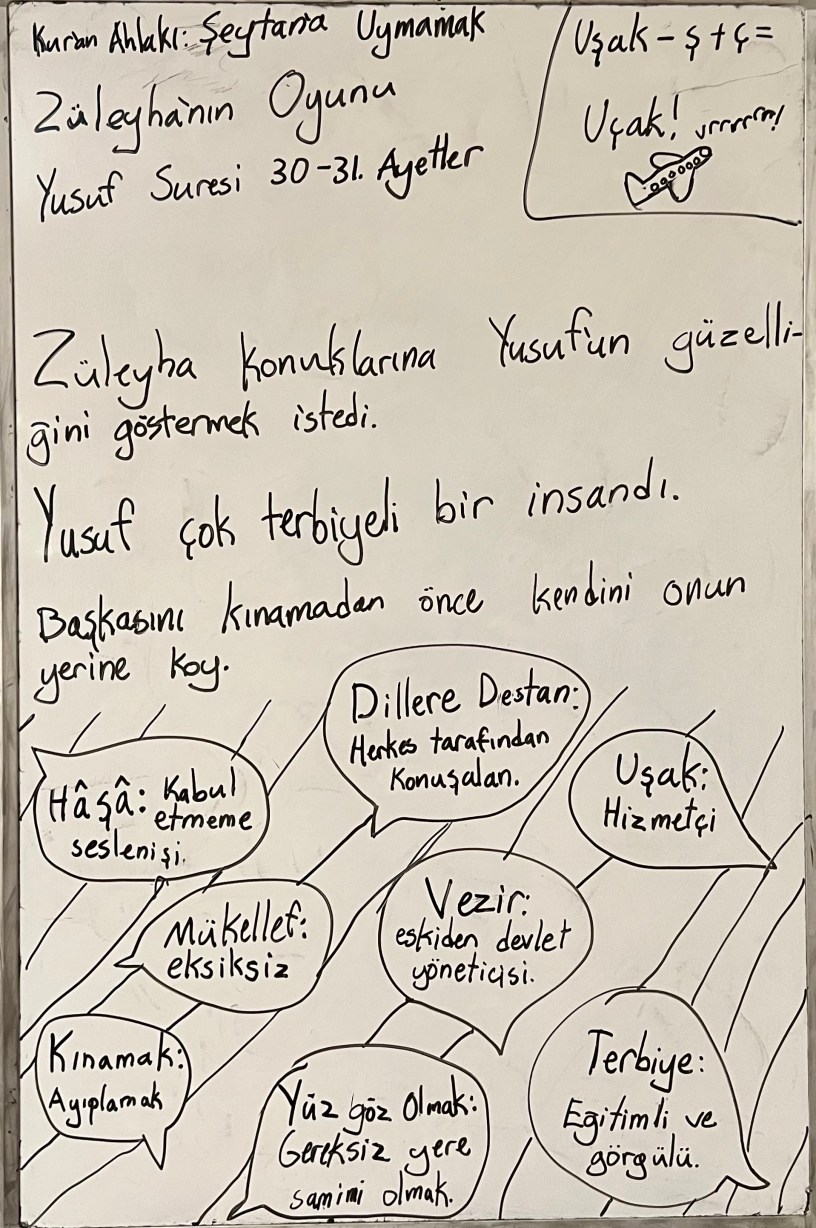 Kur'an Ahlakı: Şeytan'a Uymamak
Züleyha'nın Oyunu
Yusuf Suresi 30-31. Ayetler
Uşak - ş + ç =
Uçak! vrrrrrm!
Züleyha konuklarına Yusuf'un güzelli-
ğini göstermek istedi.
Yusuf çok terbiyeli bir insandı.
Başkasını kınamadan önce kendini onun
yerine koy.
Dillere Destan:
Herkes tarafından
Konuşalan.
Hâşâ: Kabul
etmeme
seslenişi.
Uşak:
Hizmetçi
Mükellef:
eksiksiz
Vezir:
eskiden devlet
yöneticisi.
Kınamak:
Ayıplamak
Yüz göz Olmak:
Gereksiz yere
samimi olmak.
Terbiye:
Eğitimli ve
görgülü.